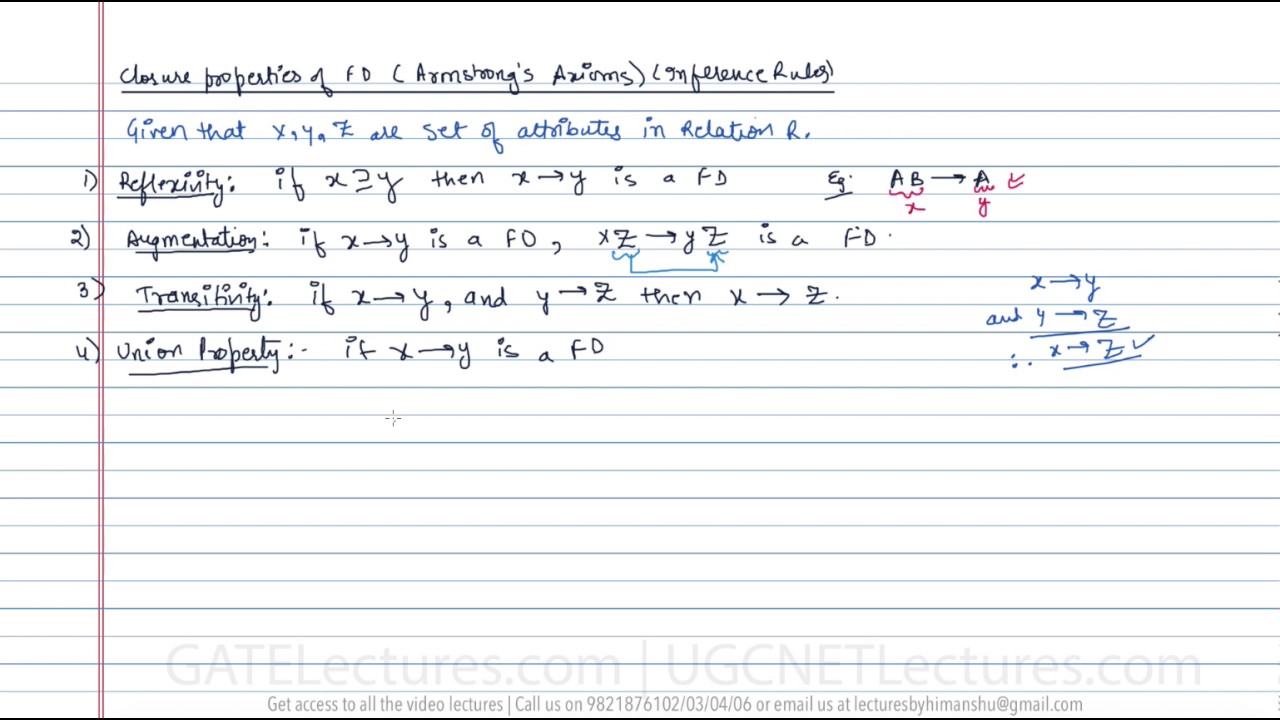 Closure properties of FD (Armstrong's Axioms) (Inference Rules)
Given that x, y, Z are set of attributes in Relation R.
1) Reflexivity: if x ⊇ y then x → y is a FD Eg: AB → A
x y
2) Augmentation: if x → y is a FD, xZ → yZ is a FD.
3) Transitivity: if x → y, and y → Z then x → Z.
x → y
and y → Z
∴ x → Z ✓
4) Union Property:- if x → y is a FD
GATELectures.com | UGCNETLectures.com
Get access to all the video lectures | Call us on 9821876102/03/04/06 or email us at lecturesbyhimanshu@gmail.com